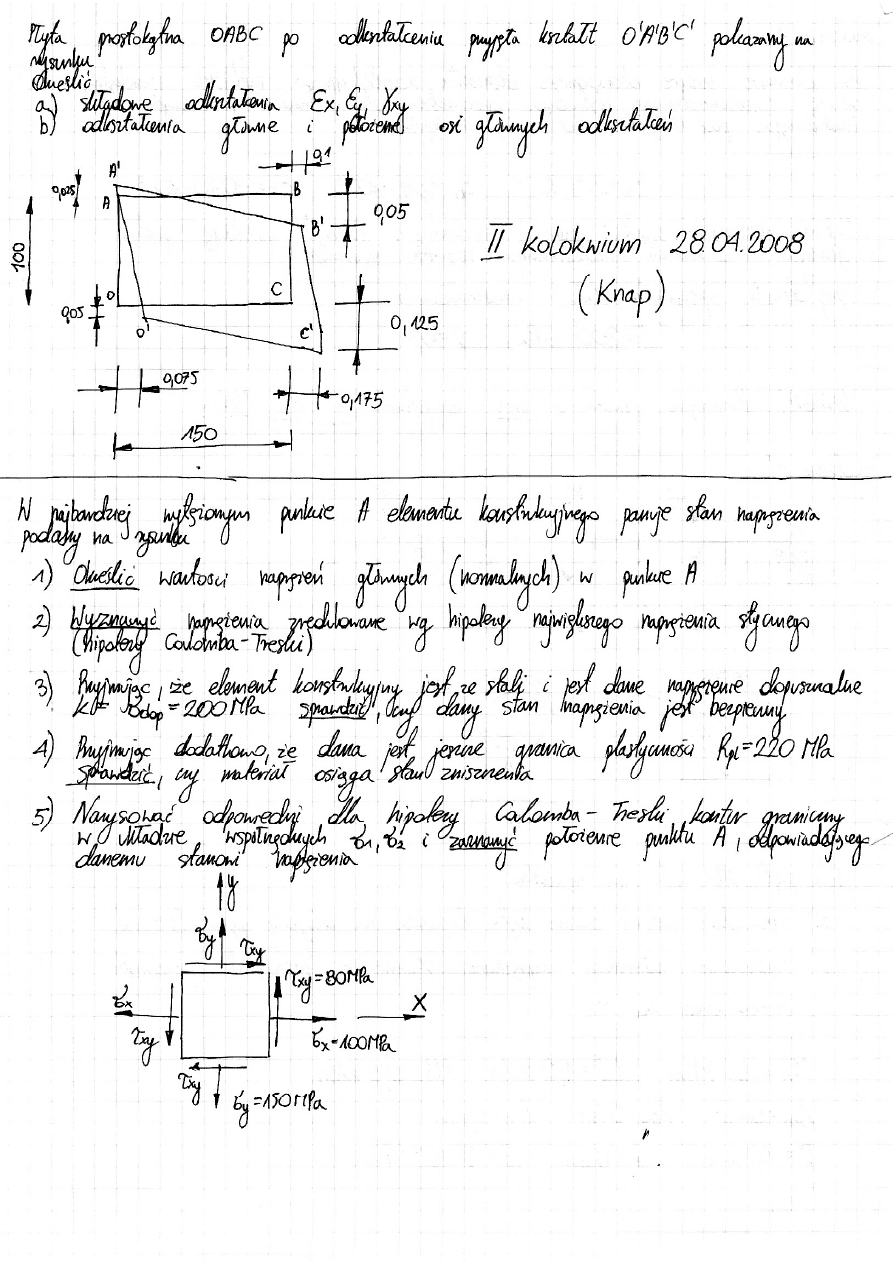 Płyta prostokątna OABC po odkształceniu przyjęła kształt O'A'B'C' pokazany na
rysunku
Określić
a) składowe odkształcenia εx, εy, γxy
b) odkształcenia główne i położenie osi głównych odkształceń
0,1
A'
0,025
A
B
B'
0,05
100
II kolokwium 28.04.2008
(Knap)
O
C
0,05
O'
C'
0,125
0,075
0,175
150
W najbardziej wytężonym punkcie A elementu konstrukcyjnego panuje stan naprężenia
podany na rysunku
1) Określić wartości naprężeń głównych (normalnych) w punkcie A
2) Wyznaczyć naprężenia zredukowane wg hipotezy największego naprężenia stycznego
(hipotezy Coulomba-Treski)
3) Przyjmując, że element konstrukcyjny jest ze stali i jest dane naprężenie dopuszczalne
kr= σdop = 200 MPa sprawdzić, czy dany stan naprężenia jest bezpieczny
4) Przyjmując dodatkowo, że dana jest jeszcze granica plastyczności Rpl=220 MPa
sprawdzić, czy materiał osiąga stan zniszczenia
5) Narysować odpowiedni dla hipotezy Coulomba-Treski kontur graniczny
w układzie współrzędnych σ1, σ2 i zaznaczyć położenie punktu A, odpowiadającego
danemu stanowi naprężenia
y
σy
τxy
τxy=80MPa
σx
X
τxy
σx=100MPa
τxy
σy=150MPa